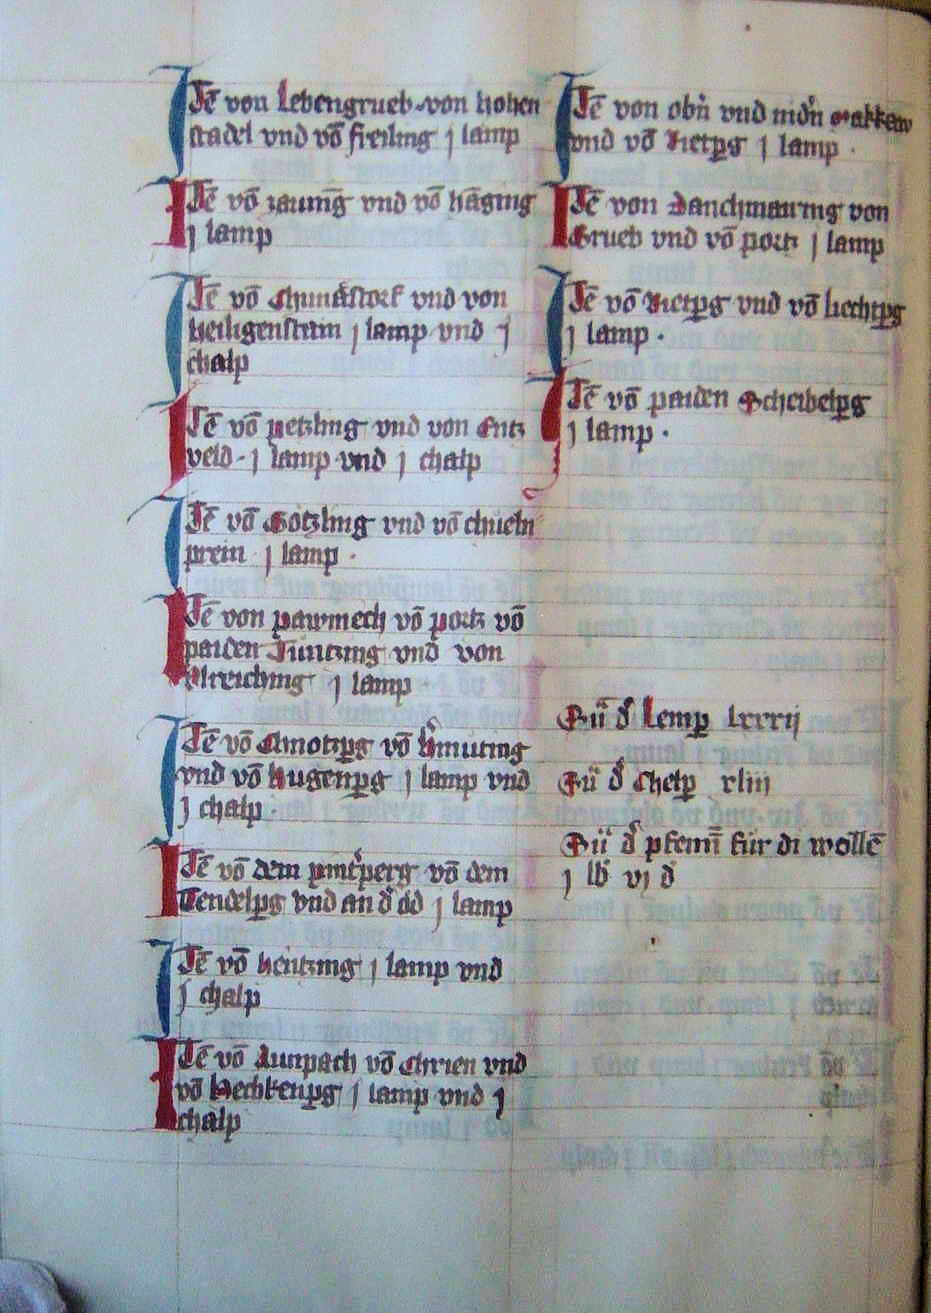 Itē von Lebengrueb von hohen
stadel vnd vō freiling j lamp
Itē vō zauing vnd vō hāging
j lamp
Itē vō vnd von
heiligenstain j lamp vnd j
chalp
Itē vō petzling vnd von Entz
veld j lamp vnd j chalp
Itē vō Götzling vnd vō chueln
prein j lamp
Itē von pawmech vō portz vō
paiden Tuntzing vnd von
Alreiching j lamp
Itē vō vō
vnd vō Hugenpg j lamp vnd
j chalp
Itē vō dem vō dem
Tendelpg vnd an d̕ öd j lamp
Itē vō hentzing j lamp vnd
j chalp
Itē vō Aunpach vō Chrien vnd
vō Hechkenpg j lamp vnd j
chalp
Itē von obn̄ vnd nidn̄
vnd vō Rietpg j lamp
Itē von Danchmaring von
Grueb vnd vō portz j lamp
Itē vō Rietpg vnd vō liechtpg
j lamp
Itē vō paiden Scheibelpg
j lamp
Sū d̕ Lemp lxxxij
Sū d̕ Chelp xliij
Sū d̕ pfenn̄ für di wollē
j lb vj d̕